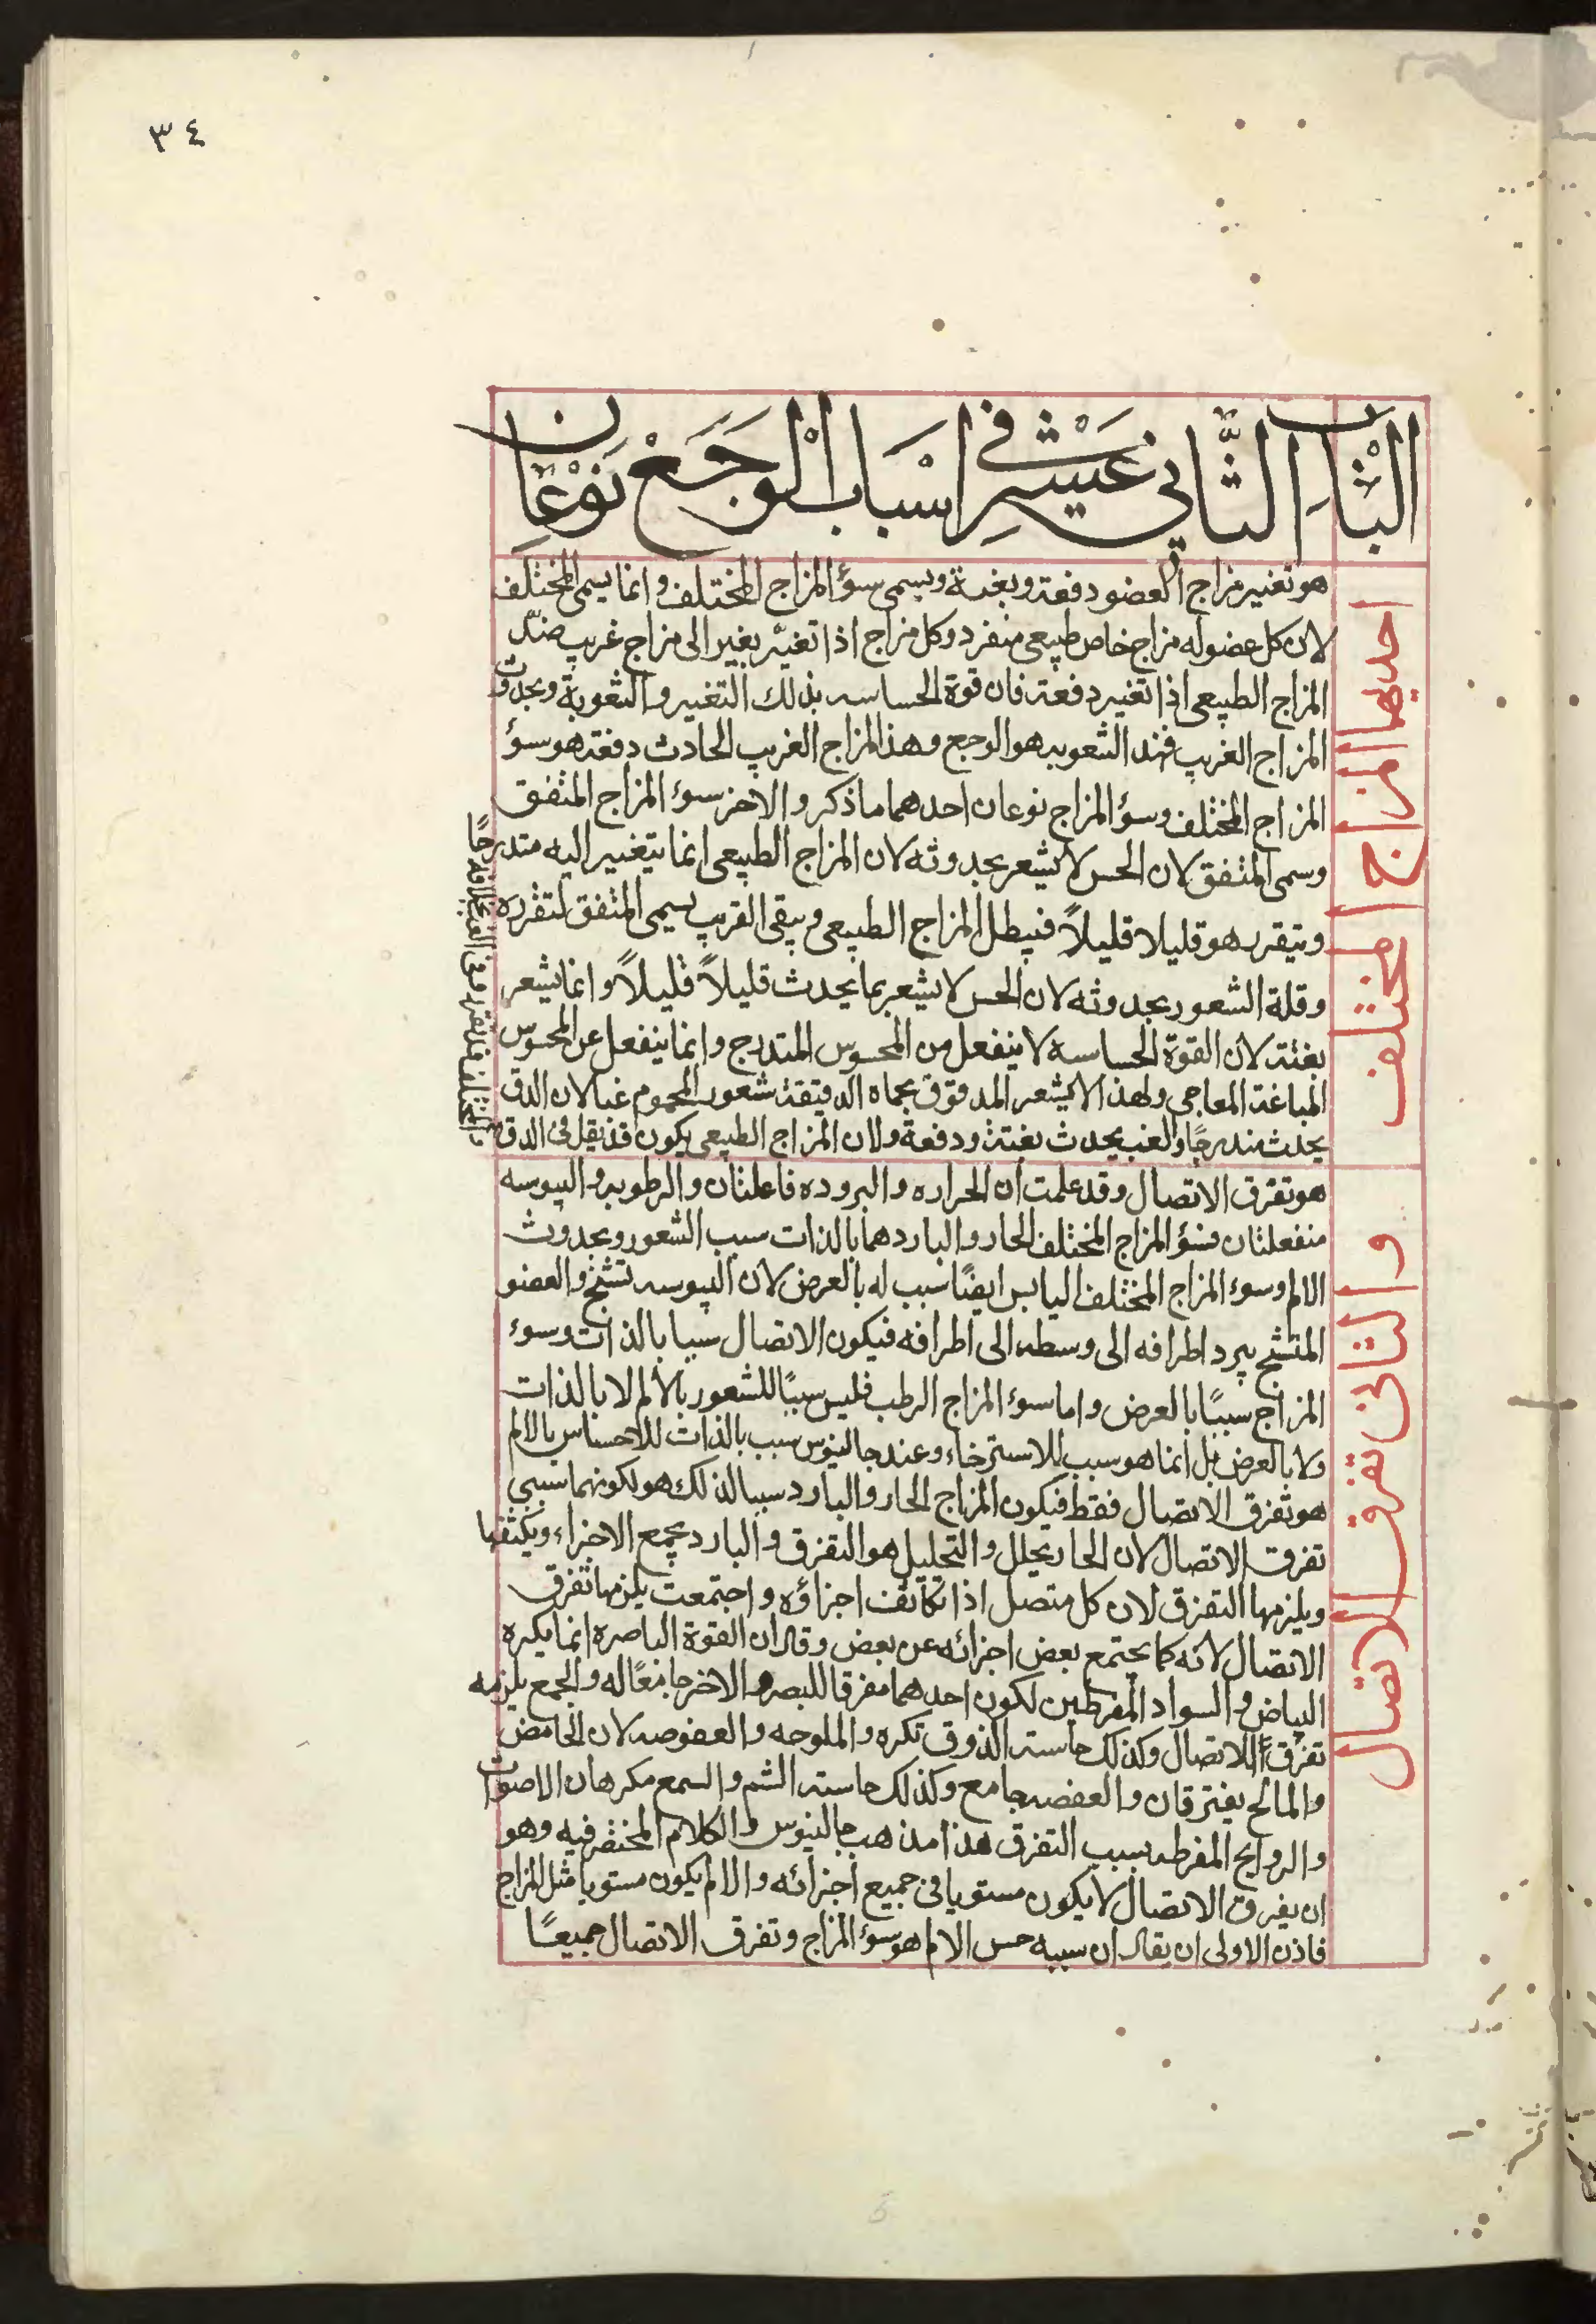 ٣٤
الباب الثاني عشر في اسباب الوجع نوعان
احديهما المزاج المختلف
هو تغيير مزاج العضو دفعة وبغتة ويسمى سؤ المزاج المختلف وانما يسمى المختلف
لان كل عضو له مزاج خاص طبيعي منفرد وكل مزاج اذا تغيّر بغير الى مزاج غريب ضدّ
المزاج الطبيعي اذا تغير دفعة فان قوة الحساسه بذلك التغيير والثعوبة وبحدوث
المزاج الغريب فهذ الشعوبه هو الوجع وهذا المزاج الغريب الحادث دفعة هو سؤ
المزاج المختلف وسؤ المزاج نوعان احدهما ما ذكر والاخر سوء المزاج المتفق
وسمى المتفق لان الحس لا يشعر بحدوثه لان المزاج الطبيعي انما يتغير اليه متدرجًا
ويتقرب هو قليلا قليلاً فيبطل المزاج الطبيعي ويبقى القريب يسمى المتفق لتقرره
وقلة الشعور بحدوثه لان الحس لا يشعر بما يحدث قليلاً قليلاً وانما يشعر
بغتة لان القوة الحساسه لا ينفعل من المحسوس المتدرج وانما ينفعل عن المحسوس
المباغتة المعاجى ولهذ الا يشعر المدقوق بحماه الدقيقة شعور المحموم غبا لان الدق
يحدث متدرجًا والغب يحدث بغتة ودفعة ولان المزاج الطبيعي يكون قد يقل فى الدق
والثانى تفرق الاتصال
هو تفرق الاتصال وقد علمت ان الحراره والبروده فاعلتان والرطوبه واليبوسه
منفعلتان فسؤ المزاج المختلف الحار والبارد هما بالذات سبب الشعور وبحدوث
الالم وسوء المزاج المختلف اليابس ايضًا سبب له بالعرض لان اليبوسه تشنج والعضو
المتشنج يبرد اطرافه الى وسطه الى اطرافه فيكون الاتصال سببا بالذات وسوء
المزاج سببًا بالعرض واما سوء المزاج الرطب فليس سببًا للشعور بالالم لا بالذات
ولا بالعرض بل انما هو سبب للاسترخاء وعند جالينوس سبب بالذات للاحساس بالالم
هو تفرق الاتصال فقط فيكون المزاج الحار والبارد سببا لذلك هو لكونهما سببي
تفرق الاتصال لان الحار يحلل والتحليل هو التفرق والبارد يجمع الاجزاء ويكثفها
ويلزمها التفرق لان كل متصل اذا تكاثف اجزاؤه واجتمعت يلزمها تفرق
الاتصال لانه كما يجتمع بعض اجزائه عن بعض وقال ان القوة الباصره انما يكره
البياض والسواد المفرطين لكون احدهما مفرقا للبصر والاخر جامعًا له والجمع يلزمه
تفرقًا للاتصال وكذلك حاسته الذوق تكره والملوحه والعفوصه لان الحامض
والمالح يفترقان والعفصه جامع وكذلك حاسته الشم والسمع مكرهان الاصوات
والروايح المفرطه بسبب التفرق هذا مذهب جالينوس والكلام المختصر فيه وهو
ان يفرق الاتصال لا يكون مستويا فى جميع اجزائه والالم يكون مستويا مثل المزاج
فاذن الاولى ان يقال ان سببه حس الالم هو سؤ المزاج وتفرق الاتصال جميعًا